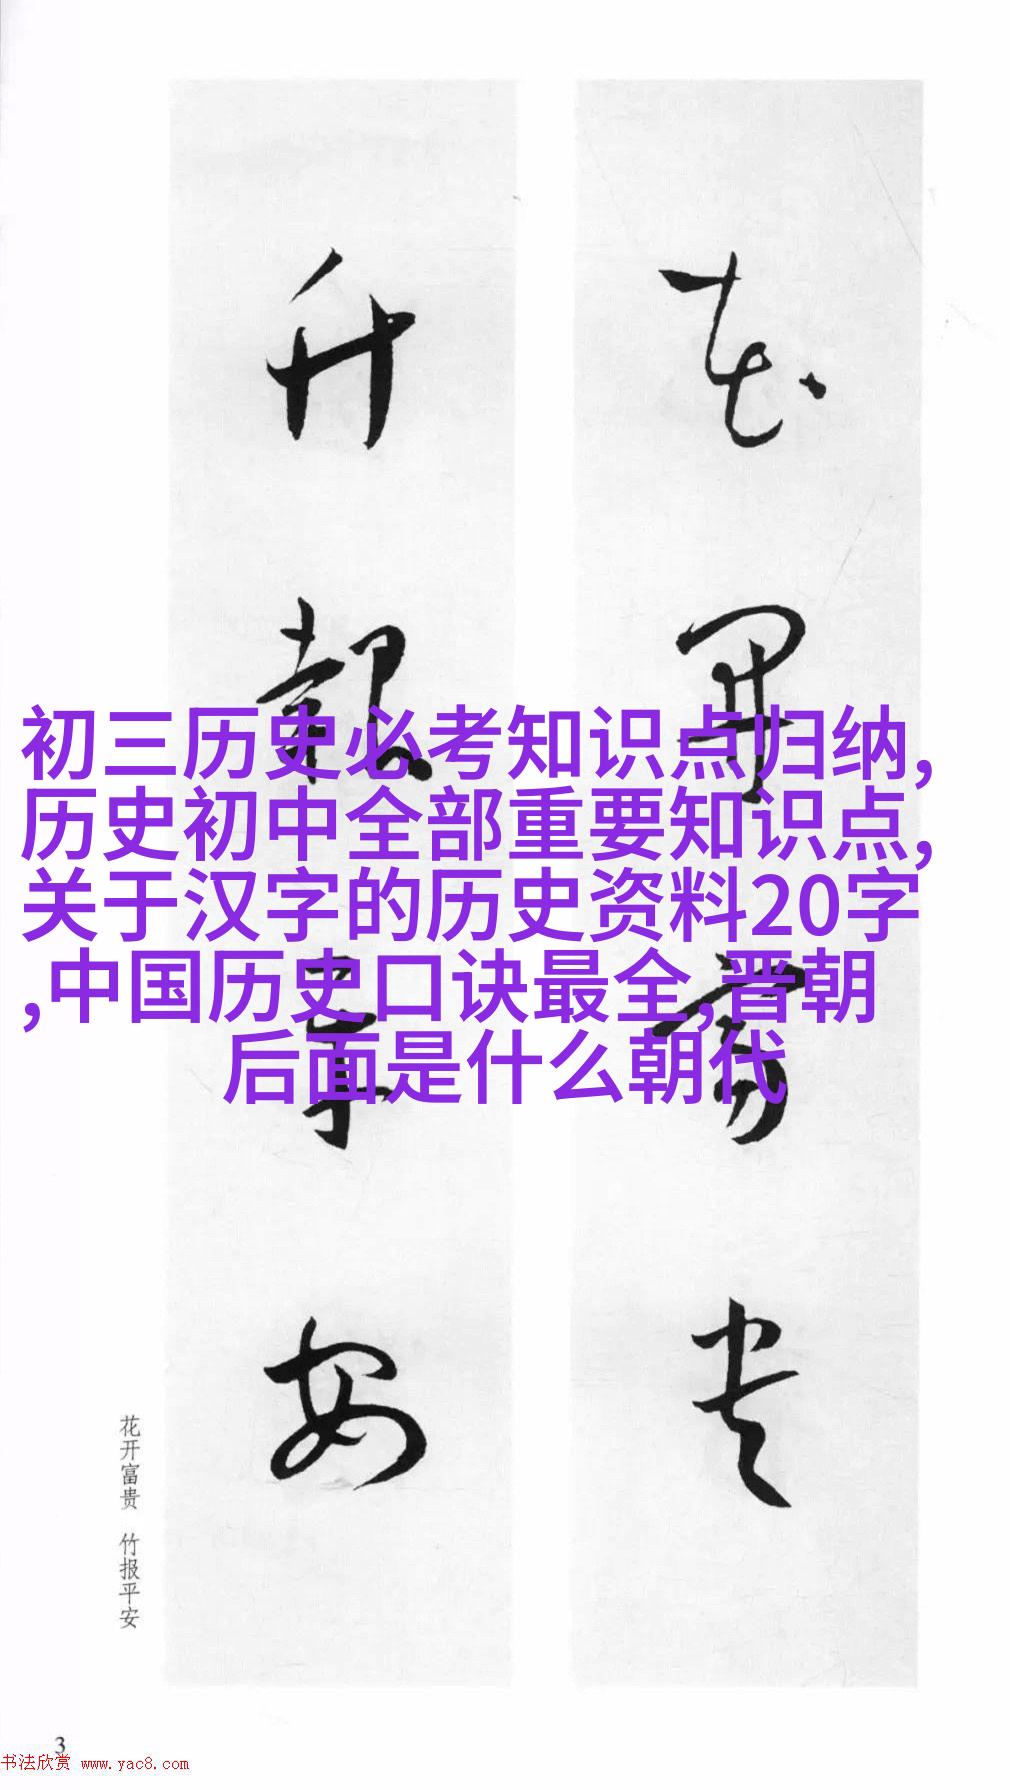 花開富貴
竹報平安
初三历史必考知识点归纳,
历史初中全部重要知识点,
关于汉字的历史资料20字
,中国历史口诀最全,晋朝
后面是什么朝代
花开富贵 竹报平安
3
书法欣赏 www.yac8.com